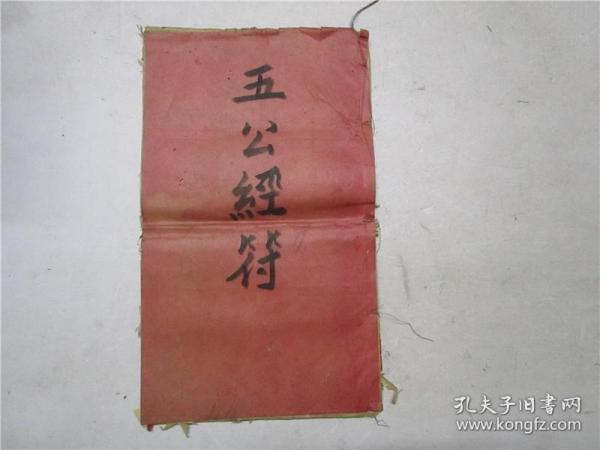 五公經符
孔夫子旧書网
www.kongfz.com